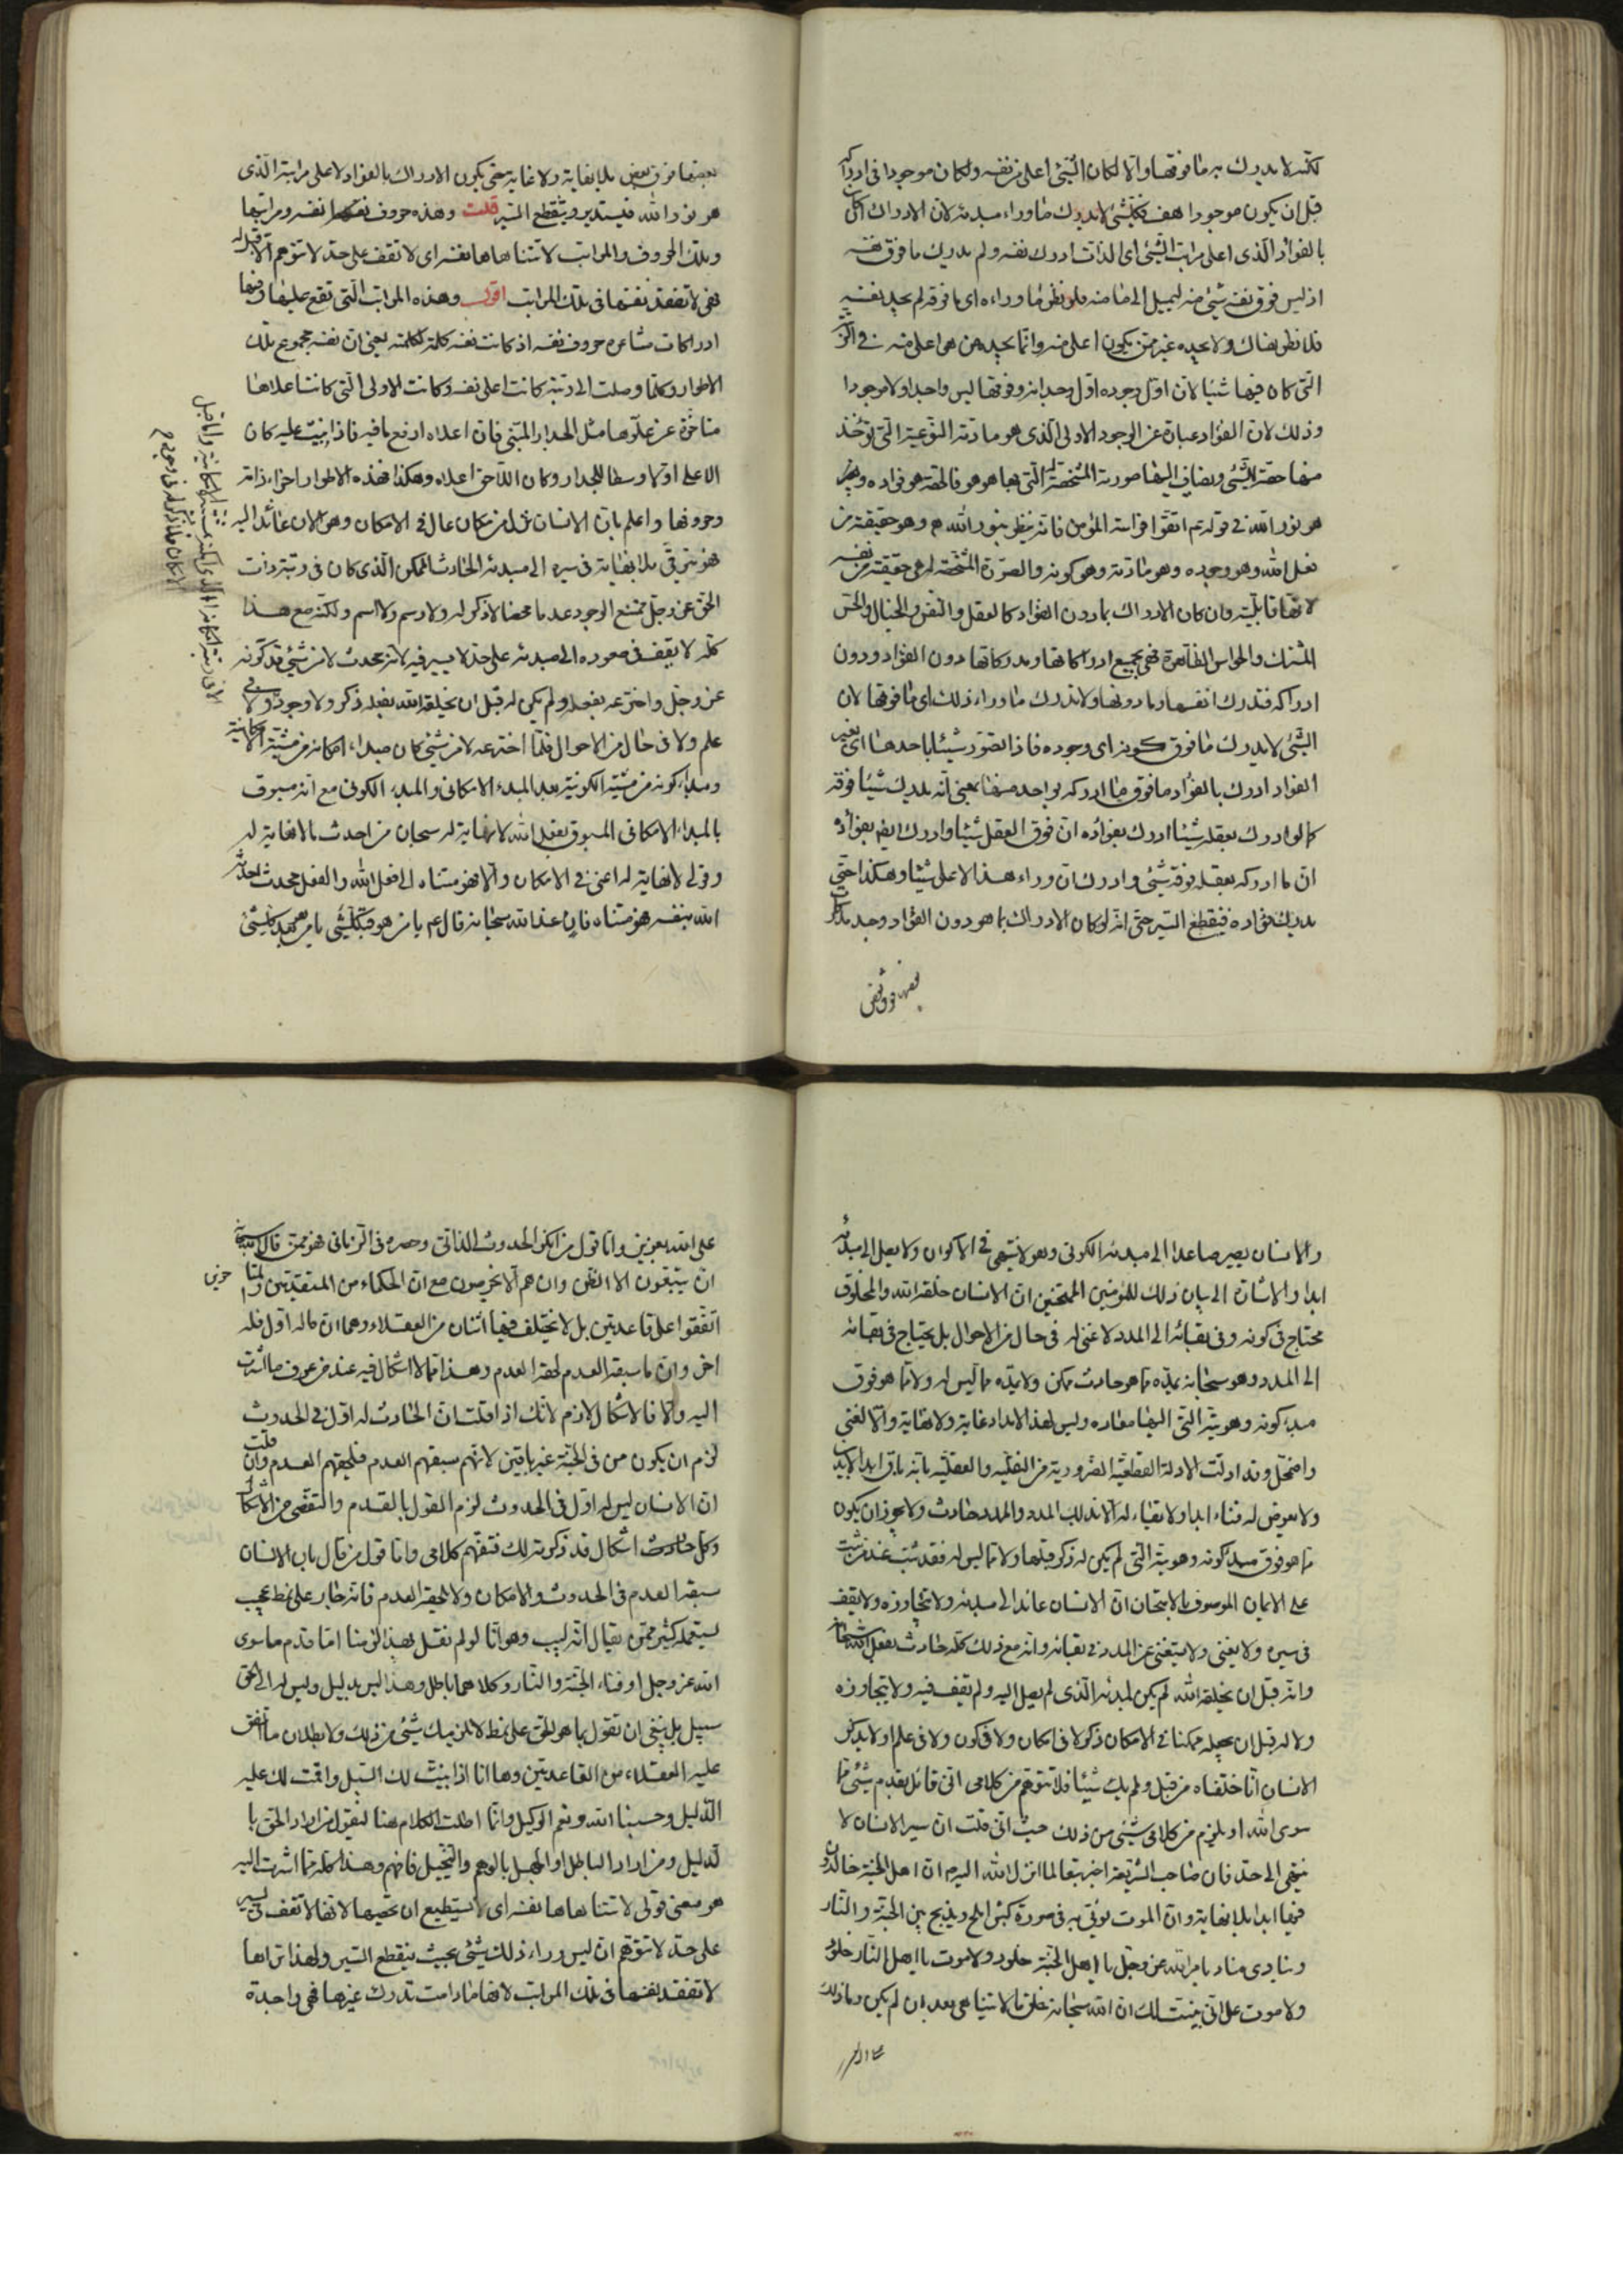 لكنّه لا يدرك به ما فوقها والا لكان الشئ اعلى من نفسه ولكان موجودا فى ادراكه
قبل ان يكون موجودا هف فكلّ شئ لا يدرك ما وراء مبدئه لان الادراك ان كان
بالفؤاد الّذى اعلى مراتب الشّئ اى الذات ادرك نفسه ولم يدرك ما فوق نفسه
اذ ليس فوق نفسه شئ منه ليميل الى ما منه فلو نظر ما وراءه اى ما فوقه لم يجد نفسه
فلا نظر هناك ولا يجده غيره ممن يكون اعلى منه وانما يجده من هو اعلى منه فى الرتبة
الّتى كان فيها شيئا لان اوّل وجوده اوّل وجدانه وفوقها ليس واجدا ولا موجودا
وذلك لان الفؤاد عبارة عن الوجود الاولى الّذى هو مادته النّوعية الّتى تؤخذ
منها حصّة للشّئ ويضاف اليها صورته المشخّصة له الّتى بها هو هو فالحصّة هو فؤاده وهو
هو نور الله فى قوله ع اتقوا فراسة المؤمن فانه ينظر بنور الله وهو حقيقته من
فعل الله وهو وجوده وهو مادته وهو كونه والصورة المشخّصة له هى حقيقته من نفسه
لانها قابليّته وان كان الادراك بما دون الفؤاد كالعقل والنفس والخيال والحس
المشترك والحواس الظاهرة فهى بجميع ادراكاتها ومدركاتها دون الفؤاد ودون
ادراكه فتدرك انفسها وما دونها ولا تدرك ما وراء ذلك اى ما فوقها لان
الشّئ لا يدرك ما فوق كونه اى وجوده فاذا تصوّر شيئا باحدها اى بغير
الفؤاد ادرك بالفؤاد ما فوق ما ادركه بواحد منها يعنى انه يدرك شيئا فوقه
كما لو ادرك بعقله شيئا ادرك بفؤاده ان فوق العقل شيئا وادرك ايضا بفؤاده
ان ما ادركه بعقله فوقه شئ وادرك ان وراء هذا الاعلى شيئا وهكذا حتى
يدرك بفؤاده فينقطع السّير حتى انه لو كان الادراك بما هو دون الفؤاد وجد
بعضها فوق بعض بلا نهاية ولا غاية حتى يكون الادراك بالفؤاد الاعلى مراتبه الّذى
هو نور الله فيستدير وينقطع السّير قلت وهذه حروف نفسه ومراتبها
وتلك الحروف والمراتب لا تتناهاها نفسه اى لا تقف على حدّ لا تتوهم الا قبله
فهى لا تفقد نفسها فى تلك المراتب اقول وهذه المراتب الّتى تقع عليها وفيها
ادراكات مشاعره حروف نفسه اذ كانت نفسه كلمة لكلمته يعنى ان نفسه مجموع تلك
الاطوار وكلّما وصلت الى رتبة كانت اعلى نفسه وكانت الاولى الّتى كانت اعلاها
متاخّرة عن علوّها مثل الجدار المبنى فان اعلاه ارفع ما فيه فاذا بنيت عليه كان
الاعلى اوّلا وسطا للجدار وكان اللّاحق اعلاه وهكذا فهذه الاطوار اجزاء ذاته
وحروفها واعلم بان الانسان نزل من مكان عال فى الامكان وهو الان عائد اليه
فهو يترقّى بلا نهاية فى سيره الى مبدئه الحادث الممكن الّذى كان فى رتبة ذات
الحق عز وجل ممتنع الوجود عدما محضا لا ذكر له ولا رسم ولا اسم ولكنّه مع هذا
كلّه لا يقف فى صعوده الى مبدئه على حدّ لا يسير فيه لانه محدث لا من شئ قد كوّنه
عز وجل واخترعه بفعله ولم يكن له قبل ان يخلقه الله بفعله ذكر ولا وجود ولا فى
علم ولا فى حال من الاحوال فلمّا اخترعه لا من شئ كان مبداء امكانه من مشيّته الامكانية
ومبدء كونه من مشيّته الكونية بعد المبدء الامكانى والمبدء الكونى مع انه مسبوق
بالمبداء الامكانى المسبوق بفعل الله لا نهاية له سبحان من احدث ما لا نهاية له
وقولى لا نهاية له اعنى فى الامكان والا فهو متناه الى فعل الله والفعل محدث احدثه
الله بنفسه فهو متناه فان عند الله سبحانه قال ع يا من هو قبل كلّ شئ يا من هو بعد كلّ شئ
والانسان يصير صاعدا الى مبدئه الكونى وهو لا ينتهى فى الاكوان ولا يصل الى مبدئه
ابدا والاشارة الى بيان ذلك للمؤمنين الممتحنين ان الانسان خلقه الله والمخلوق
محتاج فى كونه وفى بقائه الى المدد لا غنى له فى حال من الاحوال بل يحتاج فى بقائه
الى المدد وهو سبحانه يمدّه مما هو حادث ممكن ولا يمدّه مما ليس له ولا مما هو فوق
مبدء كونه وهويته الّتى اليها معاده وليس لهذا الامداد غاية ولا نهاية والا لفنى
واضمحل وقد دلّت الادلة القطعيّة الضرورية من النقليّة والعقليّة بانه باق ابد الابدين
ولا يعرض له فناء ابدا ولا بقاء له الا بذلك المدد والمدد حادث ولا يجوز ان يكون
مما هو فوق مبدء كونه وهويته الّتى لم يكن له ذكر قبلها ولا مما ليس له فقد ثبت عند من ثبت
على الايمان الموصوف بالامتحان ان الانسان عائد الى مبدئه ولا يتجاوزه ولا يقف
فى سيره ولا يفنى ولا يستغنى عن المدد فى بقائه وانه مع ذلك كلّه حادث بفعل الله سبحانه
وانه قبل ان يخلقه الله لم يكن لمبدئه الّذى لم يصل اليه ولم يقف فيه ولا يتجاوزه
ولا له قبل ان يجعله ممكنا فى الامكان ذكر لا فى امكان ولا فى كون ولا فى علم او لا يذكر
الانسان انّا خلقناه من قبل ولم يك شيئا فلا تتوهّم من كلامى انى قائل بقدم شئ مما
سوى الله او يلزم من كلامى شئ من ذلك حيث انى قلت ان سير الانسان لا
ينتهى الى حدّ فان صاحب الشريعة اخبر تبعا لما انزل الله اليه ان اهل الجنة خالدون
فيها ابدا بلا نهاية وان الموت يؤتى به فى صورة كبش املح ويذبح بين الجنة والنار
وينادى مناد بامر الله عز وجل يا اهل الجنة خلود ولا موت يا اهل النار خلود
ولا موت على انى بيّنت لك ان الله سبحانه خلق ما لا يتناهى بعد ان لم يكن وما ذلك
على الله بعزيز وامّا قول من انكر الحدوث الذاتى وحصره فى الزمانى فهو ممن قال الله سبحانه
ان يتبعون الا الظن وان هم الا يخرصون مع ان الحكماء من المتقدمين والمتاخرين
اتفقوا على قاعدتين بل لا يختلف فيهما اثنان من العقلاء وهما ان ما له اوّل فله
اخر وان ما سبقه العدم لحقه العدم وهذا مما لا اشكال فيه عند من عرف ما اشرت
اليه والا فالاشكال لازم لانّك اذا قلت ان الحادث له اوّل فى الحدوث
لزم ان يكون من فى الجنّة غير باقين لانّهم سبقهم العدم فلحقهم العدم وان قلت
ان الانسان ليس له اوّل فى الحدوث لزم القول بالقدم والتفصّى من الاشكال
وكل حادث اشكال قد ذكرته لك فتفهّم كلامى وامّا قول من قال بان الانسان
سبقه العدم فى الحدوث والامكان ولا يلحقه العدم فانه جار على نمط عجيب
يستعمله كثير ممن يقال انه لبيب وهو انّا لو لم نقل بهذا لزمنا امّا قدم ما سوى
الله عز وجل او فناء الجنّة والنار وكلاهما باطل وهذا ليس بدليل وليس له الى الحق
سبيل بل ينبغى ان تقول بما هو الحق على نمط لا يلزمك شئ من ذلك ولا بطلان ما اتفق
عليه العقلاء من القاعدتين وها انا اذا بيّنت لك السّبل واقمت لك عليه
الدّليل وحسبنا الله ونعم الوكيل وانما اطلت الكلام هنا ليقول من اراد الحق با
لدليل ومن اراد الباطل او الجهل بالوهم والتخييل فافهم وهذا كلّه مما اشرت اليه
هو معنى قولى لا تتناهاها نفسه اى لا تستطيع ان تحصيها لانها لا تقف فى سير
على حدّ لا تتوهّم ان ليس وراء ذلك شئ بحيث ينقطع السّير ولهذا تراها
لا تفقد نفسها فى تلك المراتب لانها ما دامت تدرك غيرها فهى واجدة